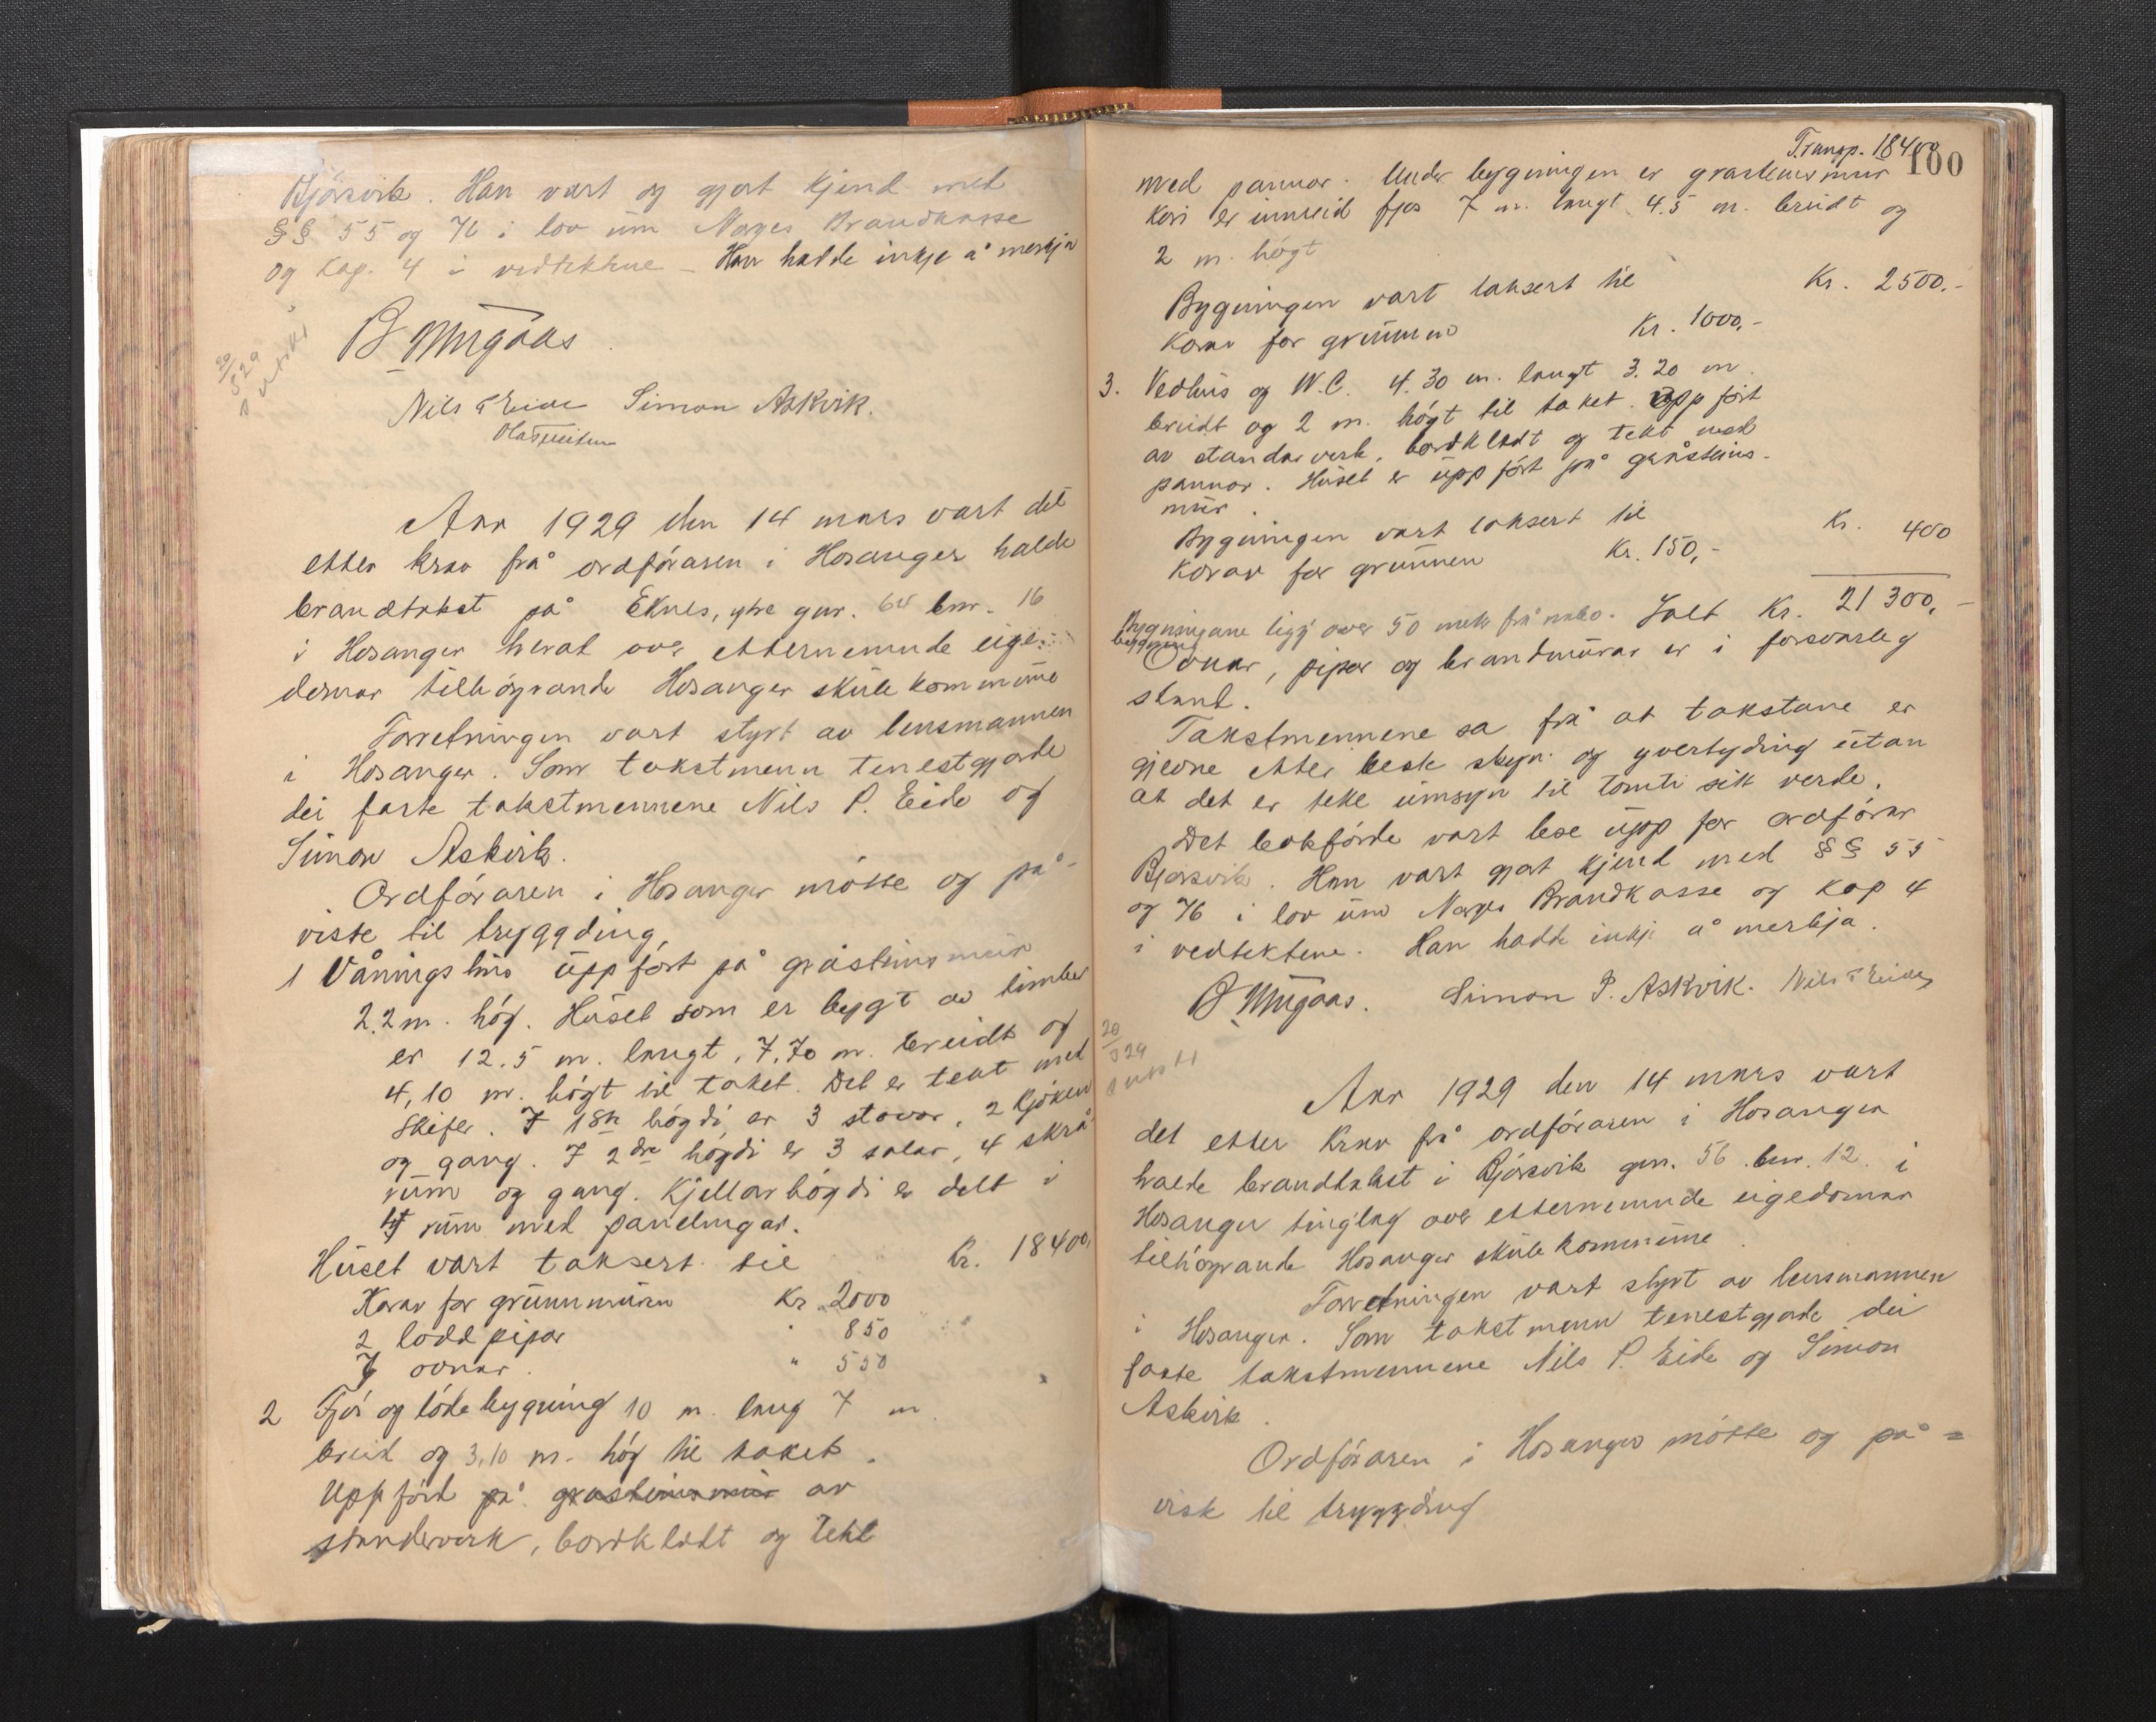 Bjørsvik. Han vart og gjort kjend med
§§ 55 og 76 i lov um Noregs Brandkasse
og Kap. 4 i vedtektene – Han hadde inkje å merkja
20/3 29
B Mugaas.
Nils P Eide Simon Askvik.
Aar 1929 den 14 mars vart det
etter krav frå ordføraren i Hosanger halde
brandtakst på Eknes, ytre gnr. 64 bnr. 16
i Hosanger herad over etternemnde eige-
domar tilhøyrande Hosanger skulekommune
Forretningen vart styrt av lensmannen
i Hosanger. Som takstmenn tenestgjorde
dei faste takstmennene Nils P. Eide og
Simon Askvik.
Ordføraren i Hosanger møtte og på-
viste til tryggding,
1 Våningshus uppført på gråsteinsmur
2.2 m. høg. Huset som er bygt av timber
er 12.5 m. langt, 7,70 m. breidt og
4,10 m. høgt til taket. Det er tekt med
skifer. I 1ste høgdi er 3 stovor, 2 kjøken
og gang. I 2dre høgdi er 3 salar, 4 skrå-
rum og gang. Kjellarhøgdi er delt i
rum med panelingar.
Huset vart taksert til Kr. 18400,
Korav for grunnmuren Kr. 2000
2 lodd pipor " 850
7 ovnar. " 550
2 Fjøs og lødebygning 10 m. lang 7 m.
breid og 3,10 m. høg til taket.
Uppførd på gråsteinsmur av
standerverk, bordkledt og tekt
Transp. 18400
100
med pannor. Under bygningen er gråsteinsmur
kori er innreid fjos 7 m. langt 4.5 m. breidt og
2 m. høgt
Bygningen vart taksert til Kr. 2500.-
Korav for grunnen Kr. 1000,-
3. Vedhus og W.C. 4.30 m. langt 3.20 m.
breidt og 2 m. høgt til taket. Uppført
av standarverk, bordkledt og tekt med
pannor. Huset er uppført på gråsteins-
mur.
Bygningen vart taksert til Kr. 400
Korav for grunnen Kr. 150,-
Bygningane ligg over 50 meter frå nabo- Ialt Kr. 21300,-
bygging
Ovnar, pipor og brandmurar er i forsvarleg
stand.
Takstmennene sa frå at takstane er
gjevne etter beste skyn og yvertyding utan
at det er teke umsyn til tomti sitt verde.
Det bokførde vart lese upp for ordførar
Bjørsvik. Han vart gjort kjend med §§ 55
og 76 i lov um Noregs Brandkasse og Kap 4
i vedtektene. Han hadde inkje å merkja.
B Mugaas. Simon P. Askvik. Nils P Eide
20/3 29
Aar 1929 den 14 mars vart
det etter krav frå ordføraren i Hosanger
halde brandtakst i Bjørsvik gnr. 56. bnr. 12. i
Hosanger tinglag over etternemnde eigedomar
tilhøyrande Hosanger skulekommune.
Forretningen vart styrt av lensmannen
i Hosanger. Som takstmenn tenestgjorde dei
faste takstmennene Nils P. Eide og Simon
Askvik.
Ordføraren i Hosanger møtte og på=
viste til tryggding